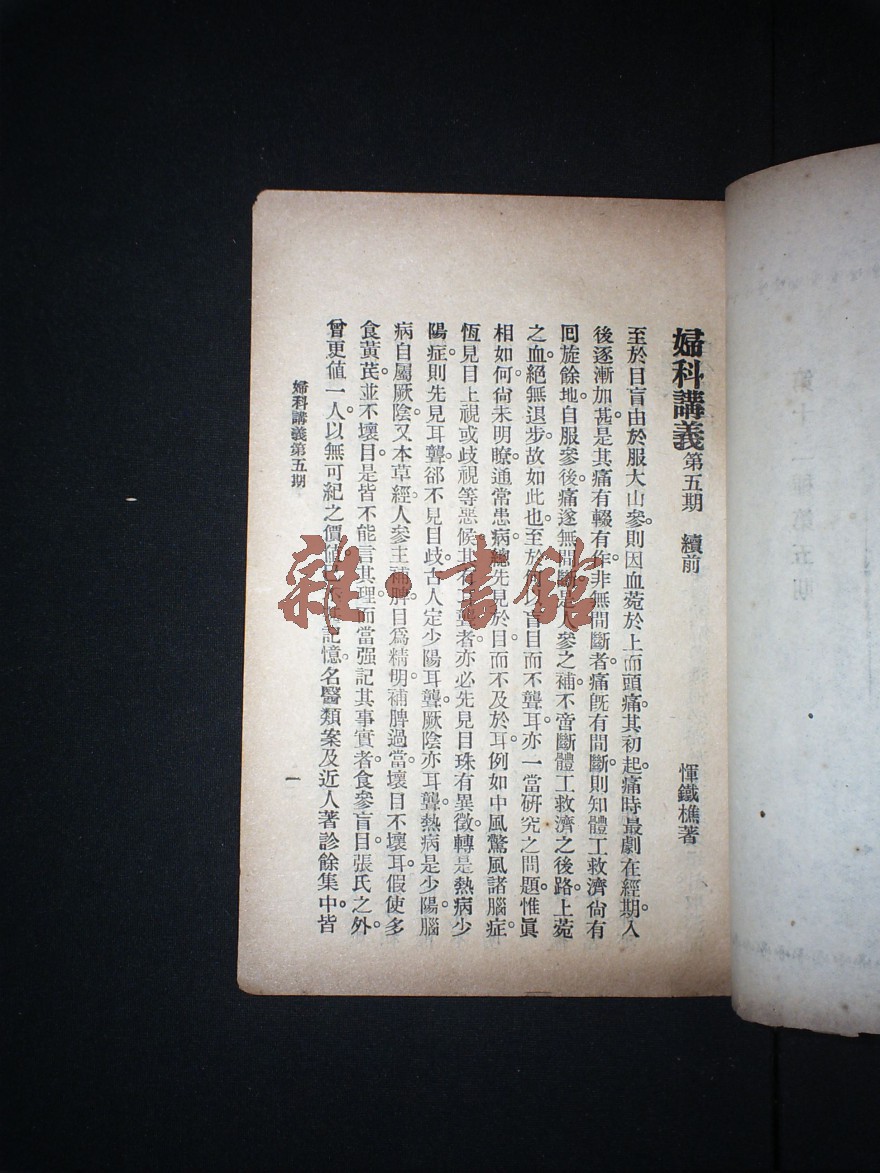 婦科講義第五期　續前　惲鐵樵著
至於目盲由於服大山參。則因血菀於上而頭痛。其初起痛時最劇在經期。入
後逐漸加甚。是其痛有輟有作。非無間斷者。痛旣有間斷。則知體工救濟尙有
囘旋餘地。自服參後。痛遂無間斷。是人參之補不啻斷體工救濟之後路。上菀
之血絕無退步。故如此也。至於可以盲目而不聾耳。亦一當研究之問題。惟眞
相如何尙未明瞭。通常患病總先見於目而不及於耳。例如中風驚風諸腦症。
恆見目上視或歧視等惡候。其有聾者。亦必先見目珠有異徵。轉是熱病少
陽症則先見耳聾。郤不見目歧。古人定少陽耳聾。厥陰亦耳聾。熱病是少陽。腦
病自屬厥陰。又本草經人參主補脾。目爲精明。補脾過當。壞目不壞耳。假使多
食黃芪。並不壞目。是皆不能言其理。而當强記其事實者。食參盲目。張氏之外。
曾更值一人。以無可紀之價値記憶。名醫類案及近人著診餘集中。皆
婦科講義第五期
一
第十二種第五期
雜·書館